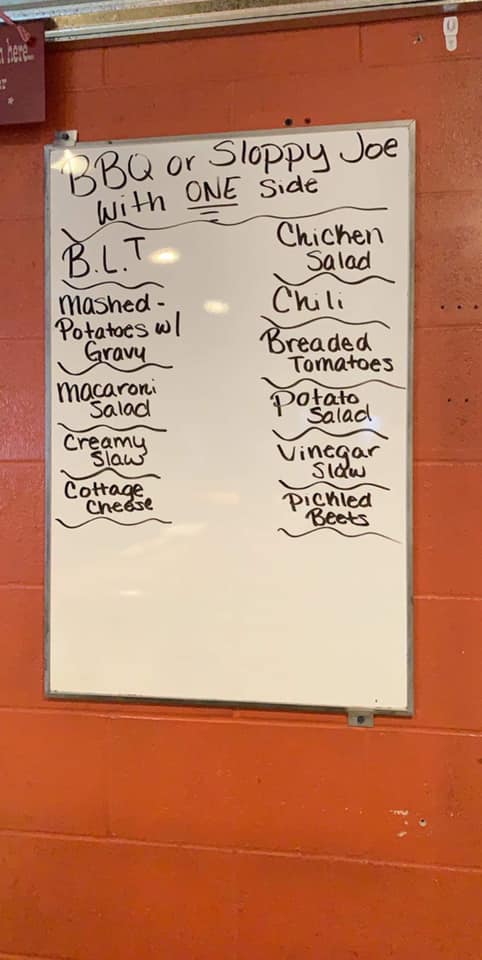 here...
BBQ or Sloppy Joe
with ONE Side
B.L.T
Mashed-
Potatoes w/
Gravy
Macaroni
Salad
Creamy
Slaw
Cottage
Cheese
Chicken
Salad
Chili
Breaded
Tomatoes
Potato
Salad
Vinegar
Slaw
Pickled
Beets